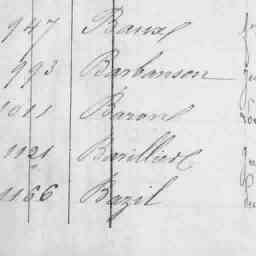 947 Baux
993 Barbanson
1011 Baron
1121 Barillier
1166 Bazil